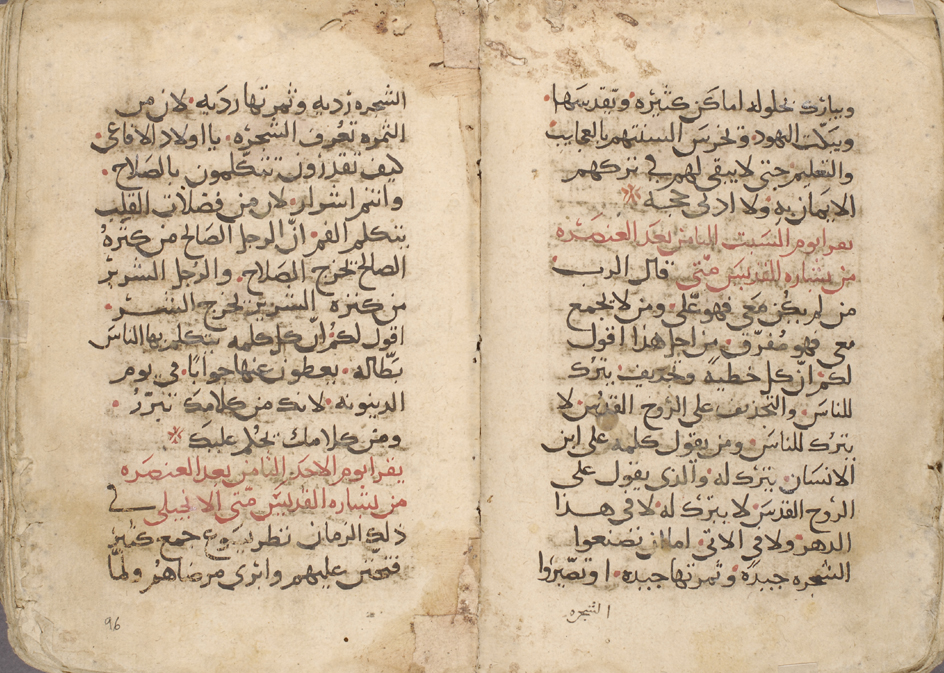 ويبارك بحلوله اماكن كثيره ويقدسها.
ويبكت اليهود ويخرس السنتهم بالعجايب
والتعليم حتى لا يبقى لهم في تركهم
الايمان به ولا ادنى حجه
يقرا يوم السبت الثامن بعد العنصره
من بشاره القديس متى قال الرب
من لم يكن معي فهو علي ومن لا يجمع
معي فهو مفرق. من اجل هذا اقول
لكم ان كل خطية وتجديف يترك
للناس. والتجديف على الروح القدس لا
يترك للناس ومن يقول كلمه على ابن
الانسان يترك له والذي يقول على
الروح القدس لا يترك له لا في هذا
الدهر ولا في الاتي. اما ان تصنعوا
الشجره جيده وثمرتها جيده. او تصيروا
الشجره
الشجره رديه وثمرتها رديه. لان من
الثمره تعرف الشجره. يا اولاد الافاعي
كيف تقدرون تتكلمون بالصلاح.
وانتم اشرار. لان من فضلات القلب
يتكلم الفم. ان الرجل الصالح من كنزه
الصالح يخرج الصلاح. والرجل الشرير
من كنزه الشرير يخرج الشر.
اقول لكم ان كل كلمه يتكلم بها الناس
بطاله. يعطون عنها جوابا. في يوم
الدينونه. لانك من كلامك تتبرر.
ومن كلامك يحكم عليك
يقرا يوم الاحد الثامن بعد العنصره
من بشاره القديس متى الانجيلي في
ذلك الزمان نظر يسوع جمع كثير
فتحنن عليهم وابرى مرضاهم ولما
96